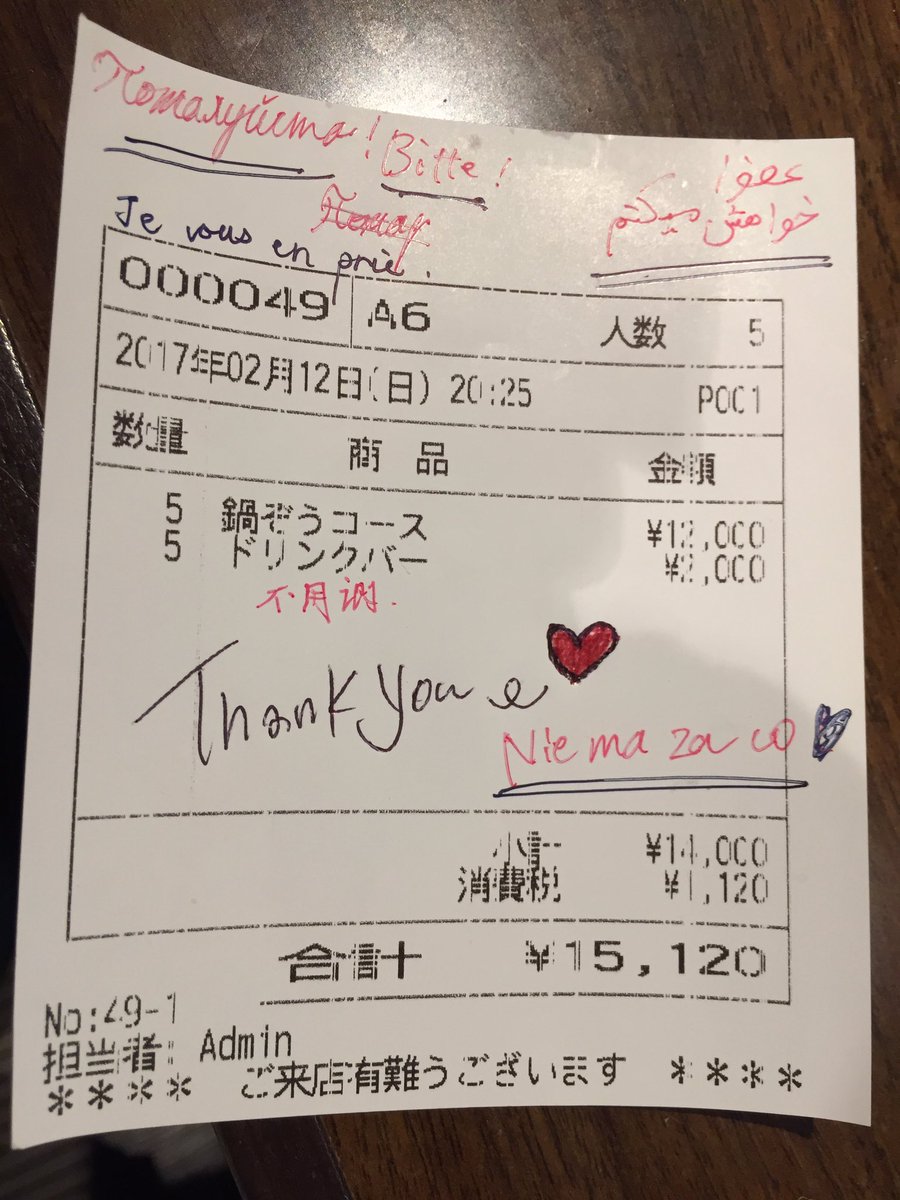 Пожалуйста! Bitte!
عفوا!
خواهش میکنم
Je vous en prie.
000049 A6 人数 5
2017年02月12日(日) 20:25 POC1
数量 商品 金額
5 鍋ぞうコース ¥12,000
5 ドリンクバー ¥2,000
不用谢.
Thank you
Nie ma za co
小計 ¥14,000
消費税 ¥1,120
合計 ¥15,120
No:49-1
担当者: Admin
**** ご来店有難うございます ****